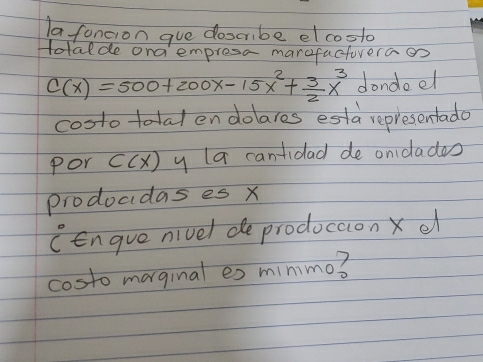 la foncion que describe el costo
total de ona empresa manofactovera es
C(x) = 500+200x-15x²+3/2x³ donde el
costo total en dolares está representado
por C(x) y la cantidad de onidades
producidas es x
¿En que nivel de produccion x el
costo marginal es minimo?